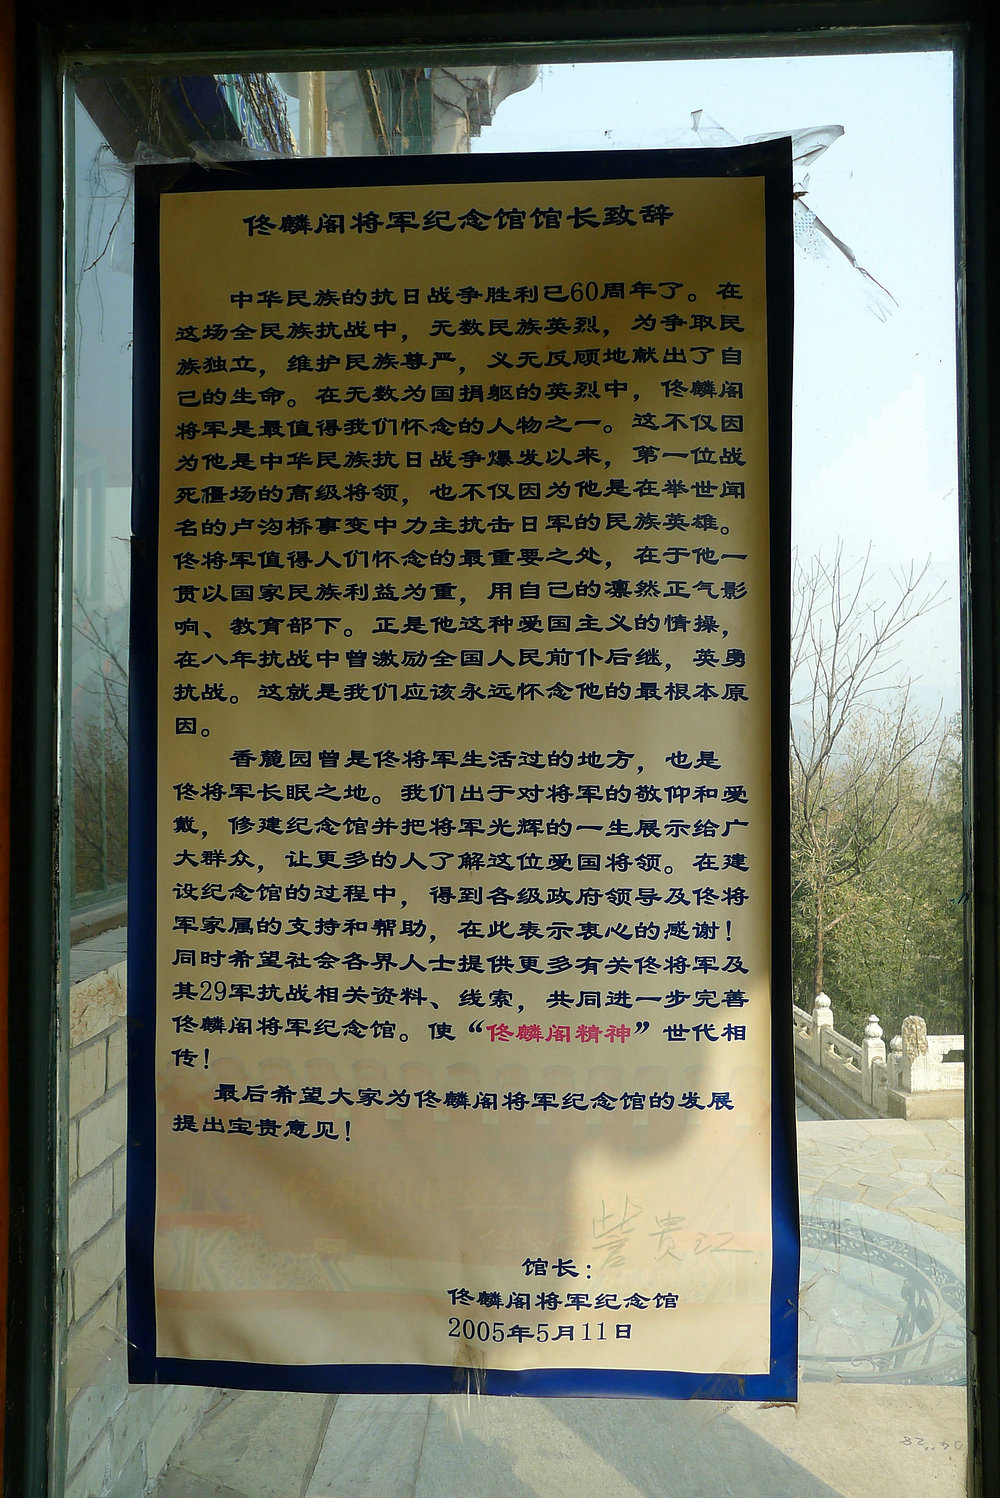 佟麟阁将军纪念馆馆长致辞
中华民族的抗日战争胜利已60周年了。在
这场全民族抗战中，无数民族英烈，为争取民
族独立，维护民族尊严，义无反顾地献出了自
己的生命。在无数为国捐躯的英烈中，佟麟阁
将军是最值得我们怀念的人物之一。这不仅因
为他是中华民族抗日战争爆发以来，第一位战
死疆场的高级将领，也不仅因为他是在举世闻
名的卢沟桥事变中力主抗击日军的民族英雄。
佟将军值得人们怀念的最重要之处，在于他一
贯以国家民族利益为重，用自己的凛然正气影
响、教育部下。正是他这种爱国主义的情操，
在八年抗战中曾激励全国人民前仆后继，英勇
抗战。这就是我们应该永远怀念他的最根本原
因。
香麓园曾是佟将军生活过的地方，也是
佟将军长眠之地。我们出于对将军的敬仰和爱
戴，修建纪念馆并把将军光辉的一生展示给广
大群众，让更多的人了解这位爱国将领。在建
设纪念馆的过程中，得到各级政府领导及佟将
军家属的支持和帮助，在此表示衷心的感谢！
同时希望社会各界人士提供更多有关佟将军及
其29军抗战相关资料、线索，共同进一步完善
佟麟阁将军纪念馆。使“佟麟阁精神”世代相
传！
最后希望大家为佟麟阁将军纪念馆的发展
提出宝贵意见！
贵江
馆长：
佟麟阁将军纪念馆
2005年5月11日